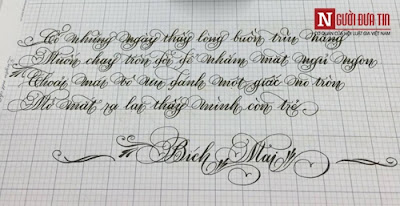 NGƯỜI ĐƯA TIN
CƠ QUAN CỦA HỘI LUẬT GIA VIỆT NAM
Có những ngày thấy lòng buồn trĩu nặng
Muốn chạy trốn để nhắm mắt ngủ ngon
Thoải mái bỏ rều sảnh một giấc no tròn
Mở mắt ra lại thấy mình còn trẻ
Bích Mai